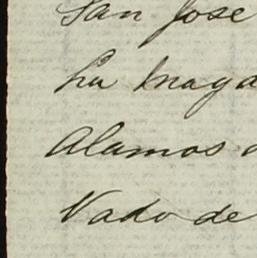 San Jose
La Magda
Alamos
Vado de